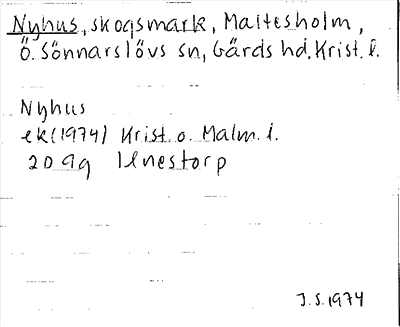 Nyhus, skogsmark, Maltesholm,
Ö. Sönnarslövs sn, Gärds hd, Krist. l.
Nyhus
ek (1974) Krist. o. Malm. l.
2D 9g Unestorp
J.S. 1974